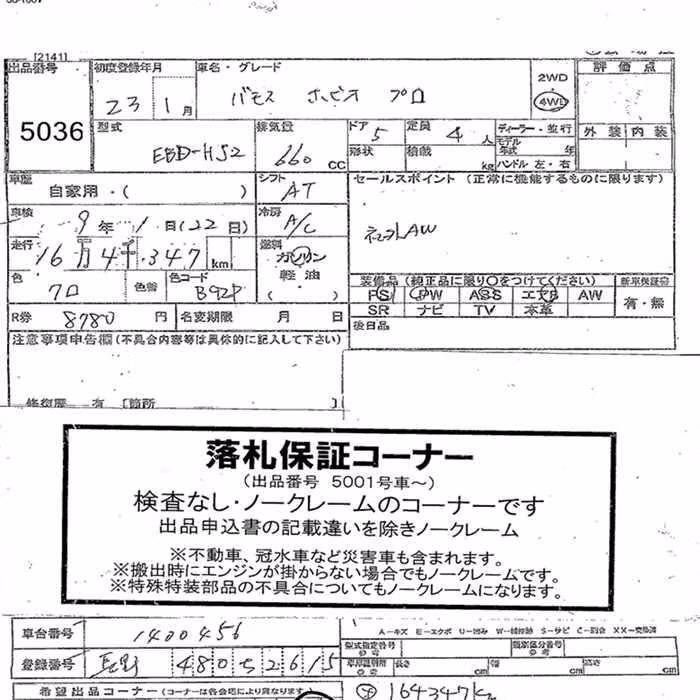 [2141]
出品番号 初度登録年月 車名・グレード 評価点
2WD
4WD
23 1月 バモス ホビオ プロ
5036
型式 排気量 ドア 5 定員 4人 ディーラー・並行 外装 内装
EBD-HJ2 660cc 形状 積載 kg モデル年式 年
ハンドル 左・右
車歴 シフト セールスポイント (正常に機能するものに限ります)
自家用・( ) AT
車検 9年 1日(22日) 冷房 A/C
社外AW
走行 16万4千347km 燃料 ガソリン
軽油
( )
色 クロ 色替 色コード B92P
装備品 (純正品に限り○をつけてください) 新車保証書
PS PW ABS エアB AW 有・無
SR ナビ TV 本革
R券 8780円 名変期限 月 日
後日品
注意事項申告欄(不具合内容等は具体的に記入して下さい)
修復歴 有 [箇所 ]
落札保証コーナー
(出品番号 5001号車~)
検査なし・ノークレームのコーナーです
出品申込書の記載違いを除きノークレーム
※不動車、冠水車など災害車も含まれます。
※搬出時にエンジンが掛からない場合でもノークレームです。
※特殊特装部品の不具合についてもノークレームになります。
車台番号 1400456
A-キズ E-エクボ U-凹み W-補修跡 S-サビ C-腐食 XX-交換済
型式指定番号 類別区分番号
登録番号 長野 480 5 2615
長さ cm 幅 cm 高さ cm
希望出品コーナー (コーナーは各会場により異なります)
164347km